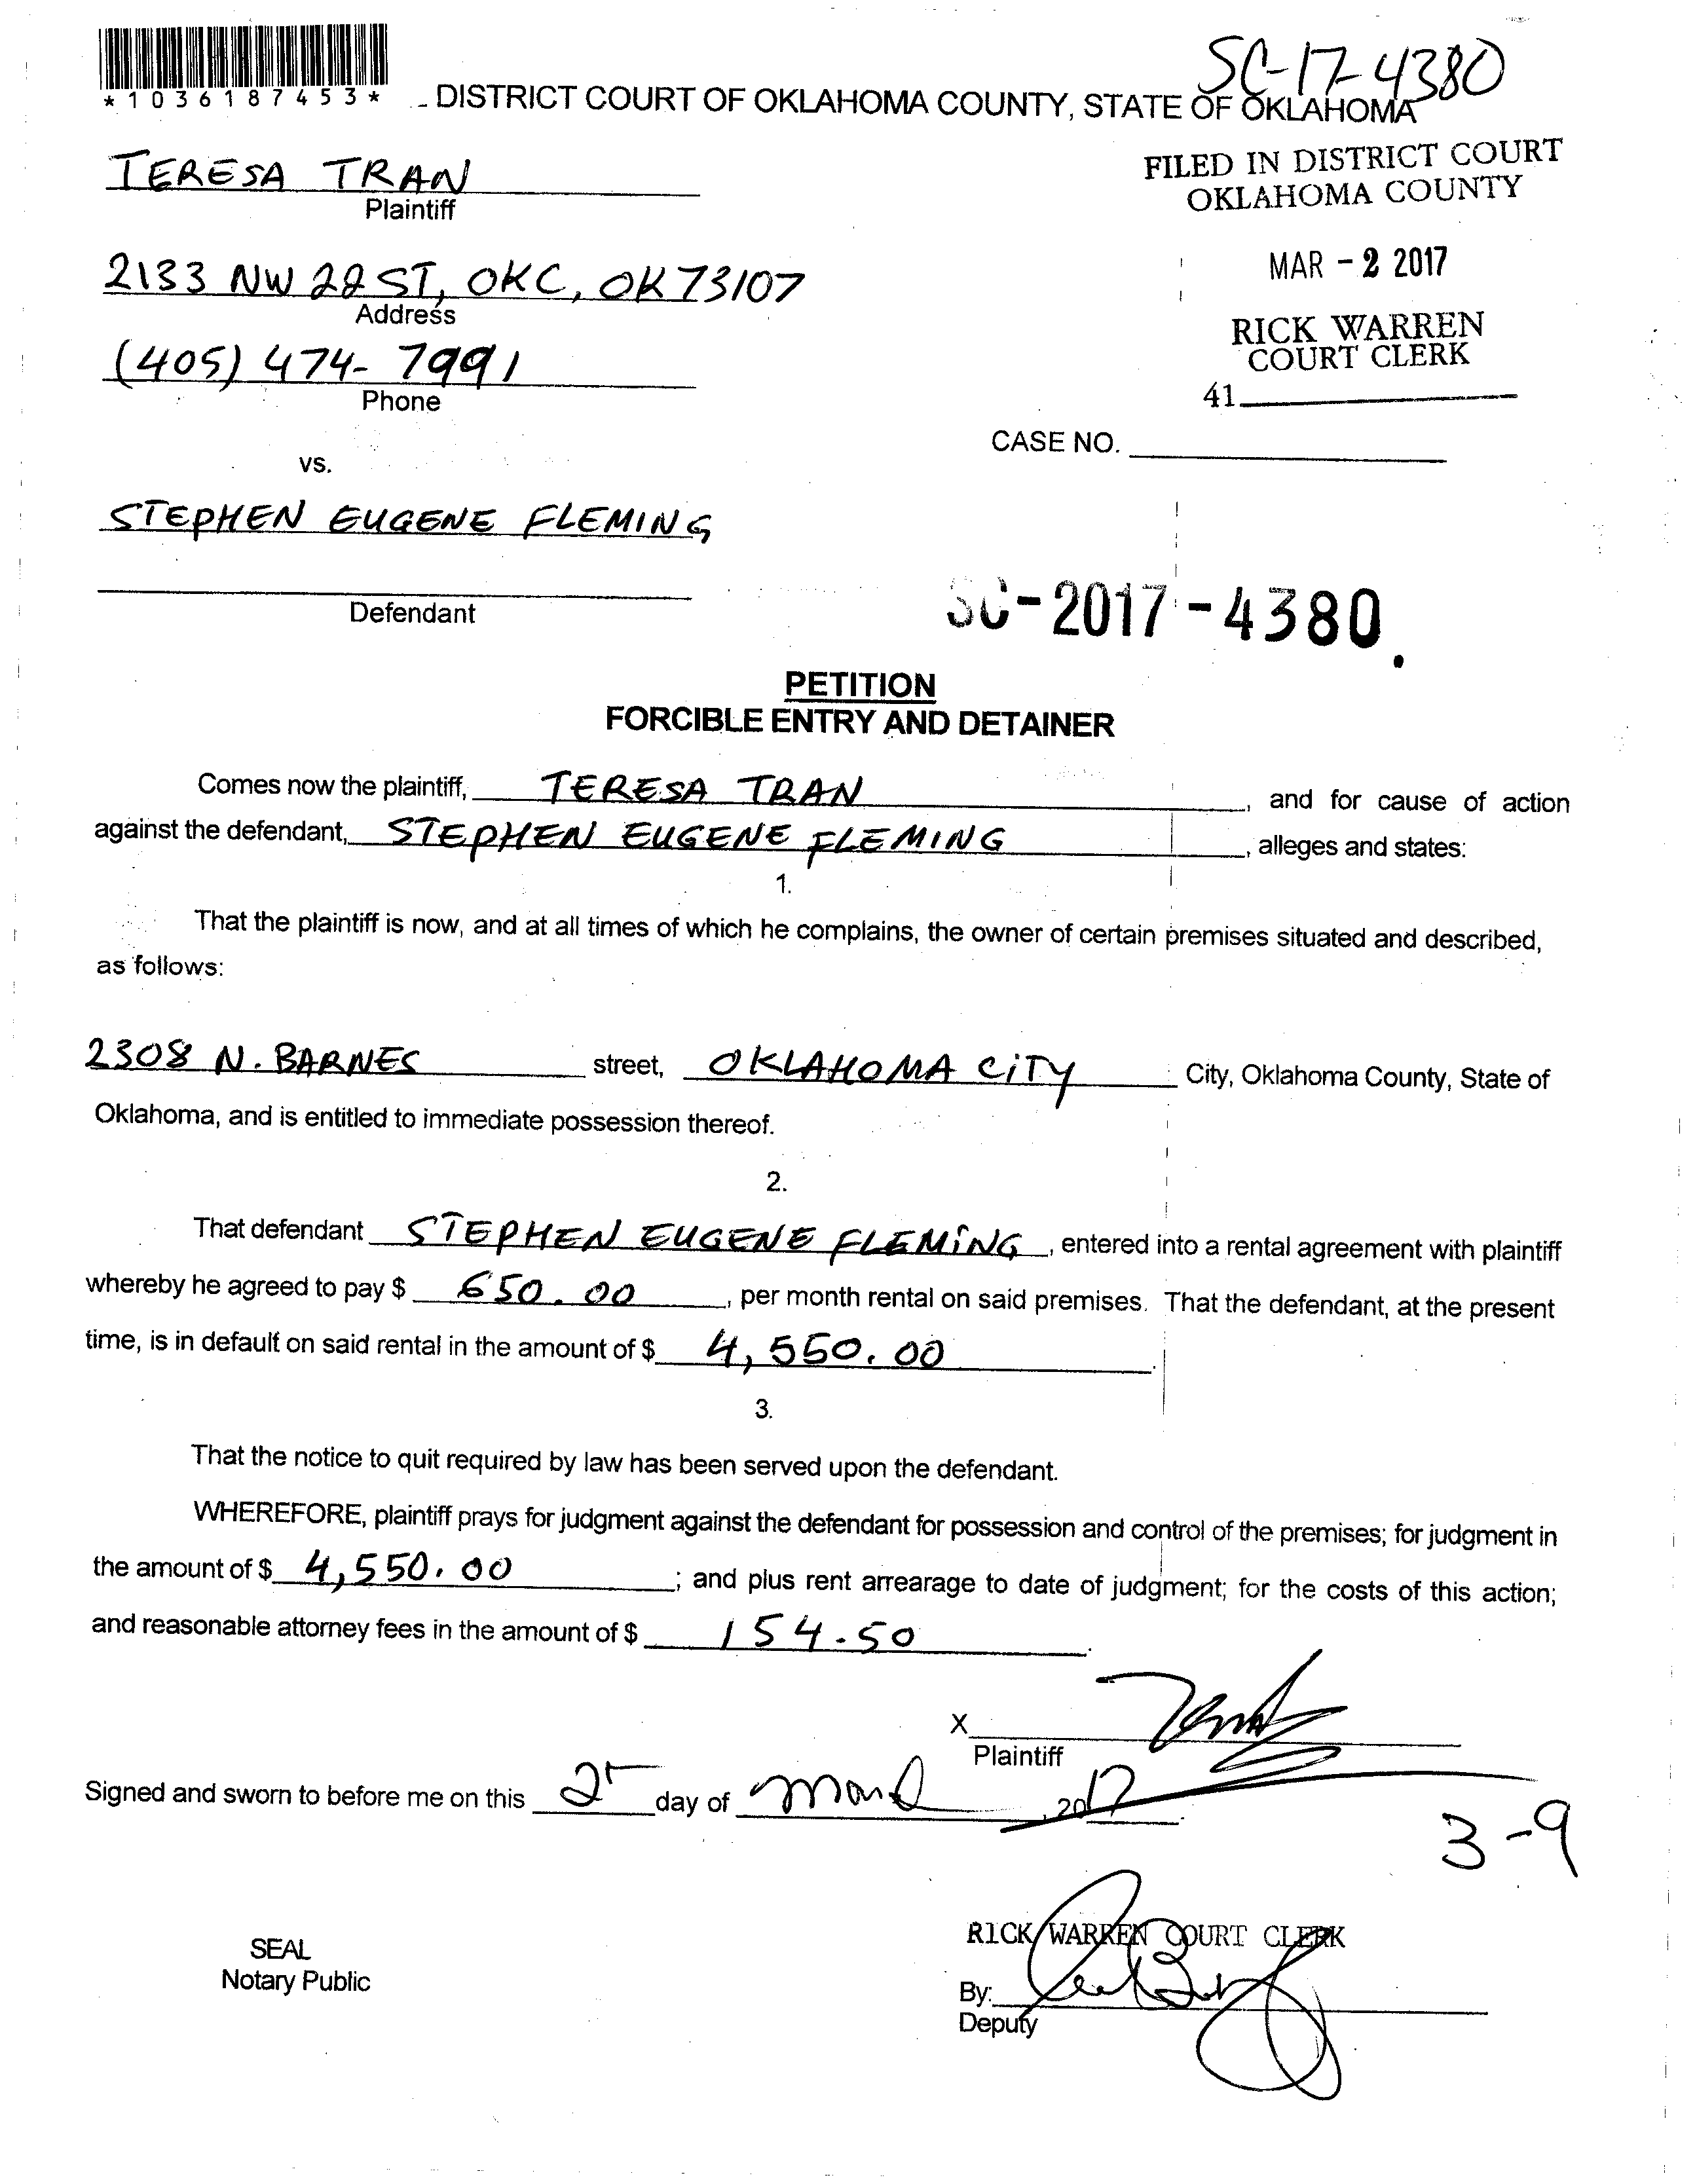 SC-17-4380
*1036187453*
- DISTRICT COURT OF OKLAHOMA COUNTY, STATE OF OKLAHOMA
TERESA TRAN
Plaintiff
FILED IN DISTRICT COURT
OKLAHOMA COUNTY
2133 NW 22 ST, OKC, OK 73107
Address
MAR - 2 2017
(405) 474-7991
Phone
RICK WARREN
COURT CLERK
41
CASE NO.
vs.
STEPHEN EUGENE FLEMING
Defendant
SC-2017-4380.
PETITION
FORCIBLE ENTRY AND DETAINER
Comes now the plaintiff, TERESA TRAN, and for cause of action
against the defendant, STEPHEN EUGENE FLEMING, alleges and states:
1.
That the plaintiff is now, and at all times of which he complains, the owner of certain premises situated and described,
as follows:
2308 N. BARNES street, OKLAHOMA CiTY City, Oklahoma County, State of
Oklahoma, and is entitled to immediate possession thereof.
2.
That defendant STEPHEN EUGENE FLEMiNG, entered into a rental agreement with plaintiff
whereby he agreed to pay $ 650.00, per month rental on said premises. That the defendant, at the present
time, is in default on said rental in the amount of $ 4,550.00.
3.
That the notice to quit required by law has been served upon the defendant.
WHEREFORE, plaintiff prays for judgment against the defendant for possession and control of the premises; for judgment in
the amount of $ 4,550.00; and plus rent arrearage to date of judgment; for the costs of this action;
and reasonable attorney fees in the amount of $ 154.50.
X
Plaintiff
Signed and sworn to before me on this 2 day of March, 2017.
3-9
RICK WARREN COURT CLERK
SEAL
Notary Public
By:
Deputy